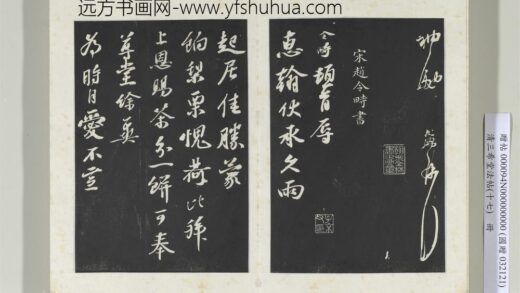 远方书画网- www.yfshuhua.com
宋趙令時書
令時頓首辱
惠翰伏承久雨
起居佳勝蒙
餉梨栗愧荷比拜
上恩賜茶分一餅可奉
尊堂餘冀
為時自愛不宣
贈帖 000094N000000000 (國贈 032121)
清三希堂法帖(十七) 冊